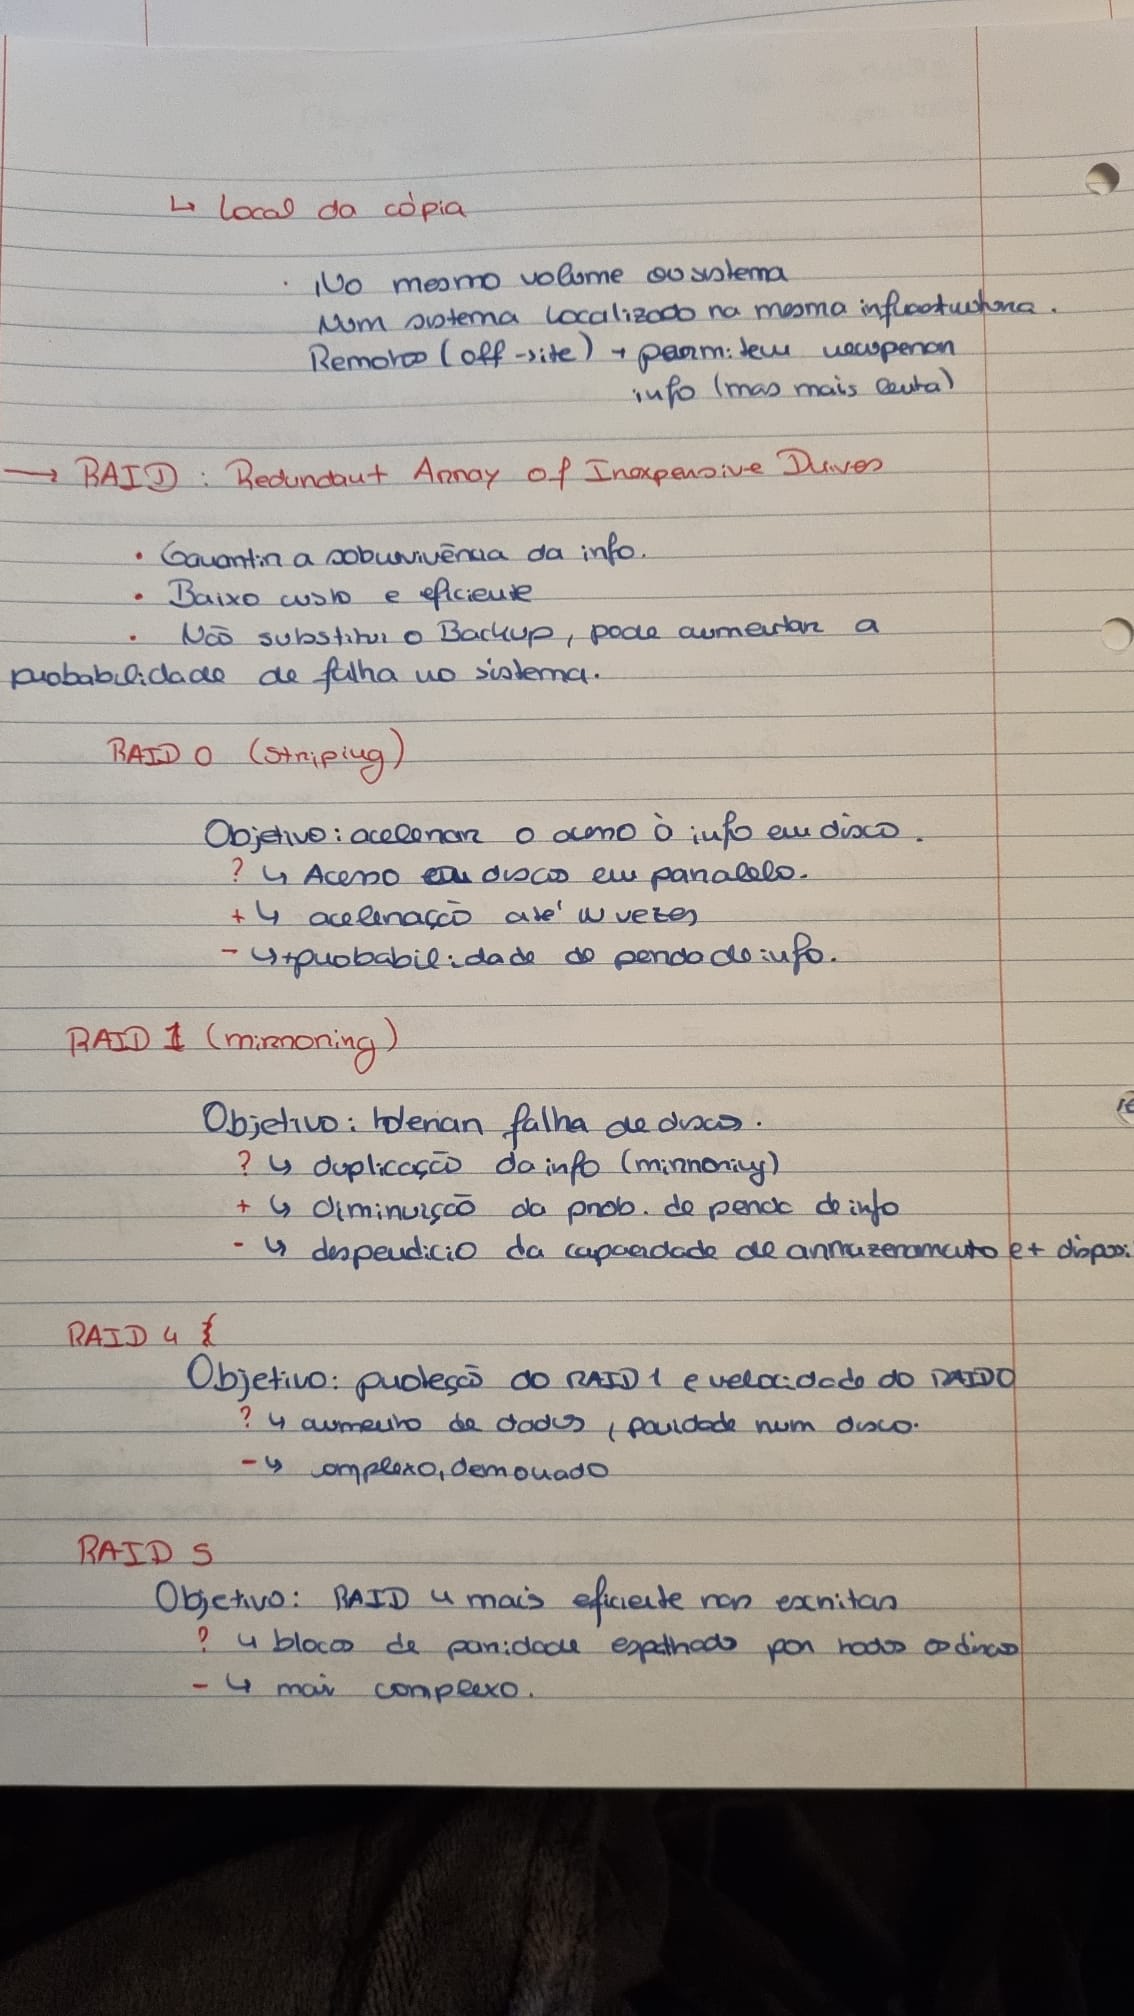 ↳ Local da cópia
· No mesmo volume ou sistema
Num sistema localizado na mesma infraestrutura.
Remotos (off-site) → permitem recuperar
info (mas mais lenta)
→ RAID : Redundant Array of Inexpensive Drives
• Garantir a sobrevivência da info.
• Baixo custo e eficiente
• Não substitui o Backup, pode aumentar a
probabilidade de falha no sistema.
RAID 0 (striping)
Objetivo: acelerar o acesso à info em disco.
? ↳ Acesso em discos em paralelo.
+ ↳ aceleração até N vezes
- ↳ + probabilidade de perda de info.
RAID 1 (mirroring)
Objetivo: tolerar falha de discos.
? ↳ duplicação da info (mirroring)
+ ↳ diminuição da prob. de perda de info
- ↳ desperdicio da capacidade de armazenamento e + disposi
RAID 4
Objetivo: proteção do RAID 1 e velocidade do RAID0
? ↳ aumento de dados, paridade num disco.
- ↳ complexo, demorado
RAID 5
Objetivo: RAID 4 mais eficiente nas escritas
? ↳ blocos de paridade espalhados por todos os discos
- ↳ mais complexo.